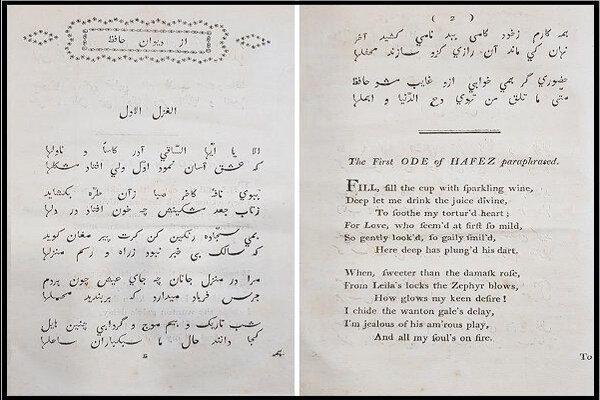 از ديوان حافظ
الغزل الاول
الا يا ايّها السّاقي ادر كاساً و ناولها
كه عشق آسان نمود اوّل ولي افتاد مشكلها
ببوي نافهٔ كاخر صبا زآن طرّه بكشايد
زتاب جعد مشكينش چه خون افتاد در دلها
بمي سجّاده رنكين كن كرت پير مغان كويد
كه سالك بي خبر نبود زراه و رسم منزلها
مرا در منزل جانان چه جاي عيش چون هردم
جرس فرياد ميدارد كه بربنديد محملها
شب تاريك و بيم موج و گردابي چنين هايل
كجا دانند حال ما سبكباران ساحلها
همه
( 2 )
همه كارم زخود كامي ببد نامي كشيد آخر
نهان كي ماند آن رازي كزو سازند محفلها
حضوري گر همي خواهي ازو غايب مشو حافظ
متي ما تلق من تهوي دع الدّنيا و اهملها
The First ODE of HAFEZ paraphrased.
FILL, fill the cup with ſparkling wine,
Deep let me drink the juice divine,
To ſoothe my tortur'd heart;
For Love, who ſeem'd at firſt ſo mild,
So gently look'd, ſo gaily ſmil'd,
Here deep has plung'd his dart.
When, ſweeter than the damaſk roſe,
From Leila's locks the Zephyr blows,
How glows my keen deſire!
I chide the wanton gale's delay,
I'm jealous of his am'rous play,
And all my ſoul's on fire.
To